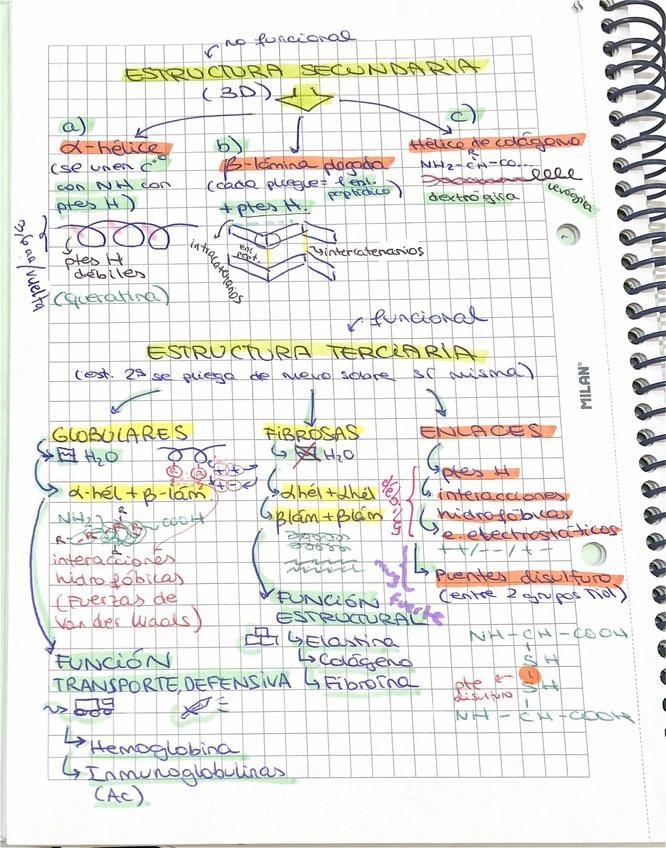 no funcional
ESTRUCTURA SECUNDARIA
(3D)
a)
α-hélice
(se unen C=O
con NH con
ptes H)
ptes H
débiles
(queratina)
b)
β-lámina plegada
(cada pliegue = 1 enl.
peptídico)
+ ptes H.
intracatenarios
enl.
pept
intercatenarios
c)
Hélice de colágeno
R
NH2-CH-CO...
levógira
dextrógira
funcional
ESTRUCTURA TERCIARIA
(est. 2ª se pliega de nuevo sobre sí misma)
GLOBULARES
H2O
α-hél + β-lám
NH2
COOH
R
R
R
R
interacciones
hidrofóbicas
(Fuerzas de
Van der Waals)
FUNCIÓN
TRANSPORTE, DEFENSIVA
Hemoglobina
Inmunoglobulinas
(Ac)
FIBROSAS
H2O
αhél + αhél
βlám + βlám
FUNCIÓN
ESTRUCTURAL
Elastina
Colágeno
Fibroína
ENLACES
débiles
ptes H
interacciones
hidrofóbicas
e. electrostáticos
++/--/+-
muy
fuerte
Puentes disulfuro
(entre 2 grupos tiol)
NH-CH-COOH
SH
pte
disulfuro
SH
NH-CH-COOH
MILAN